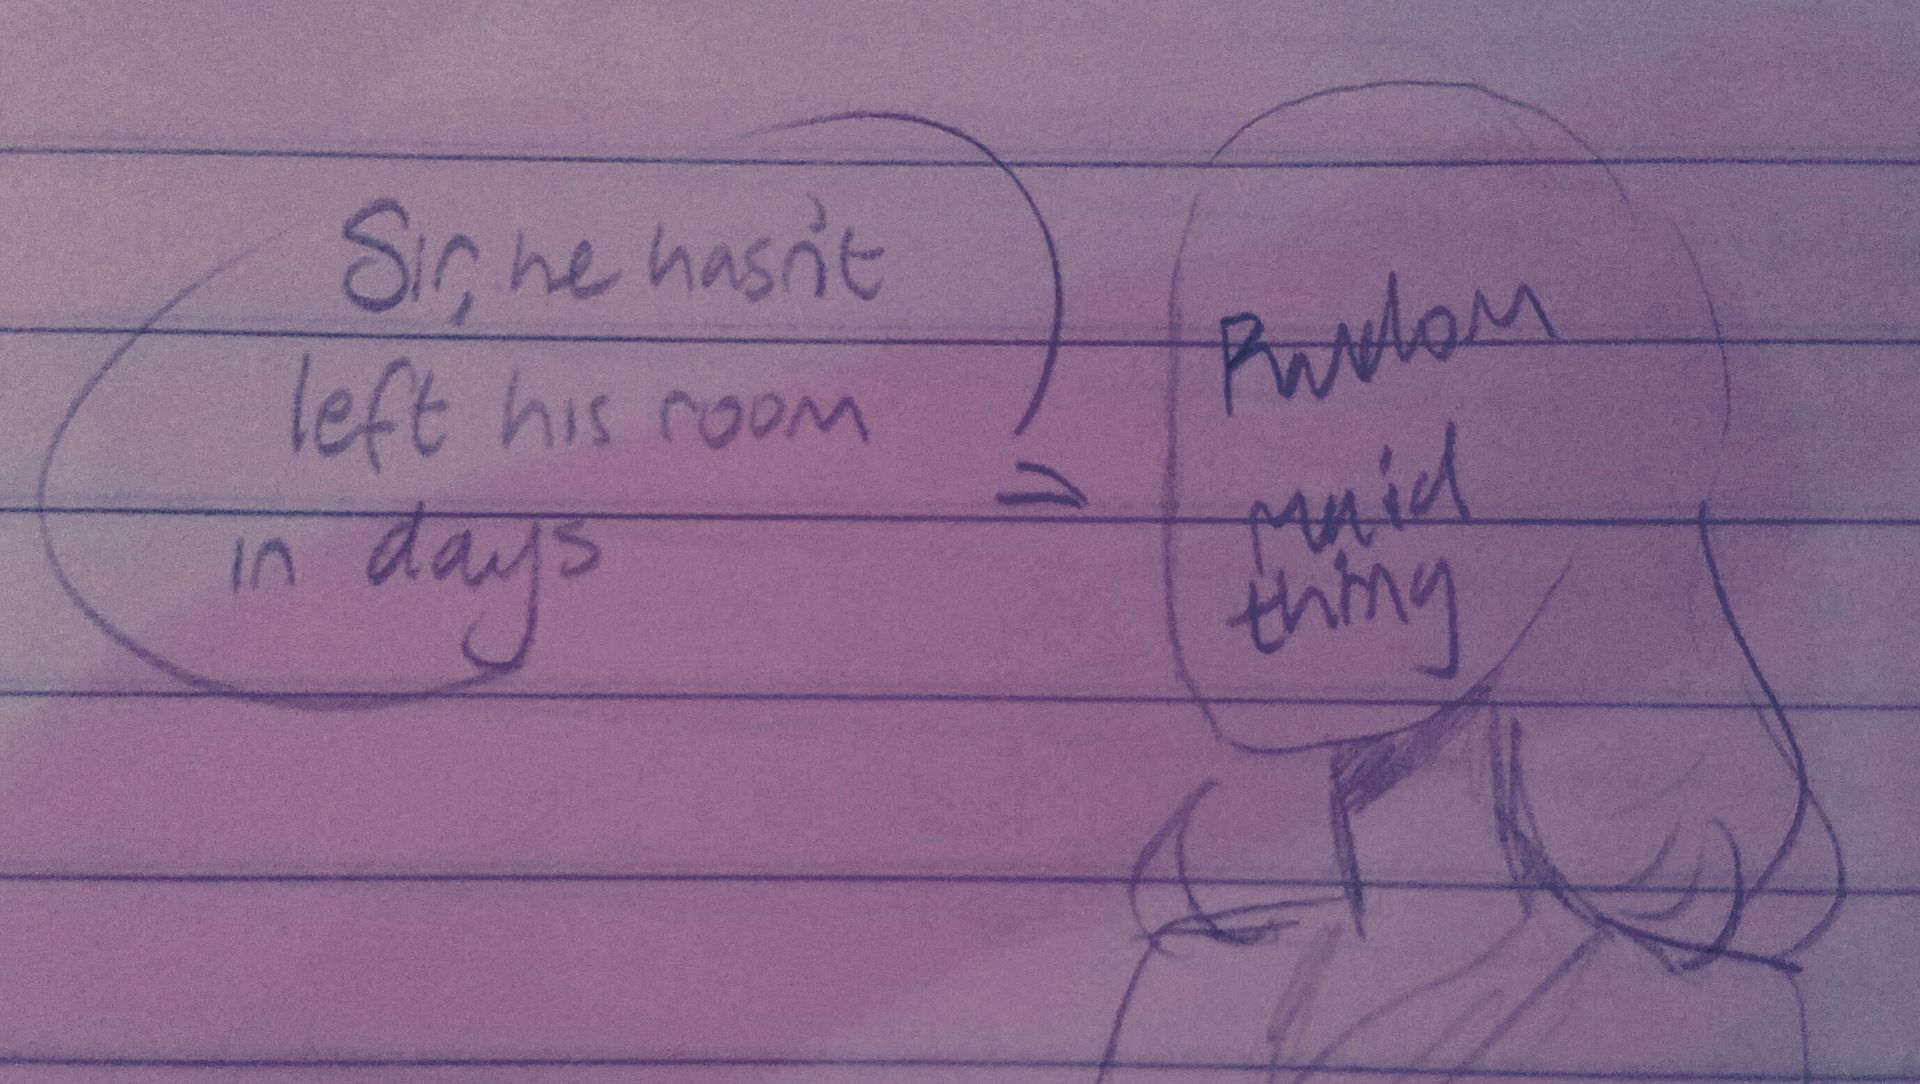 Sir, he hasn't
left his room
in days
Random
maid
thing